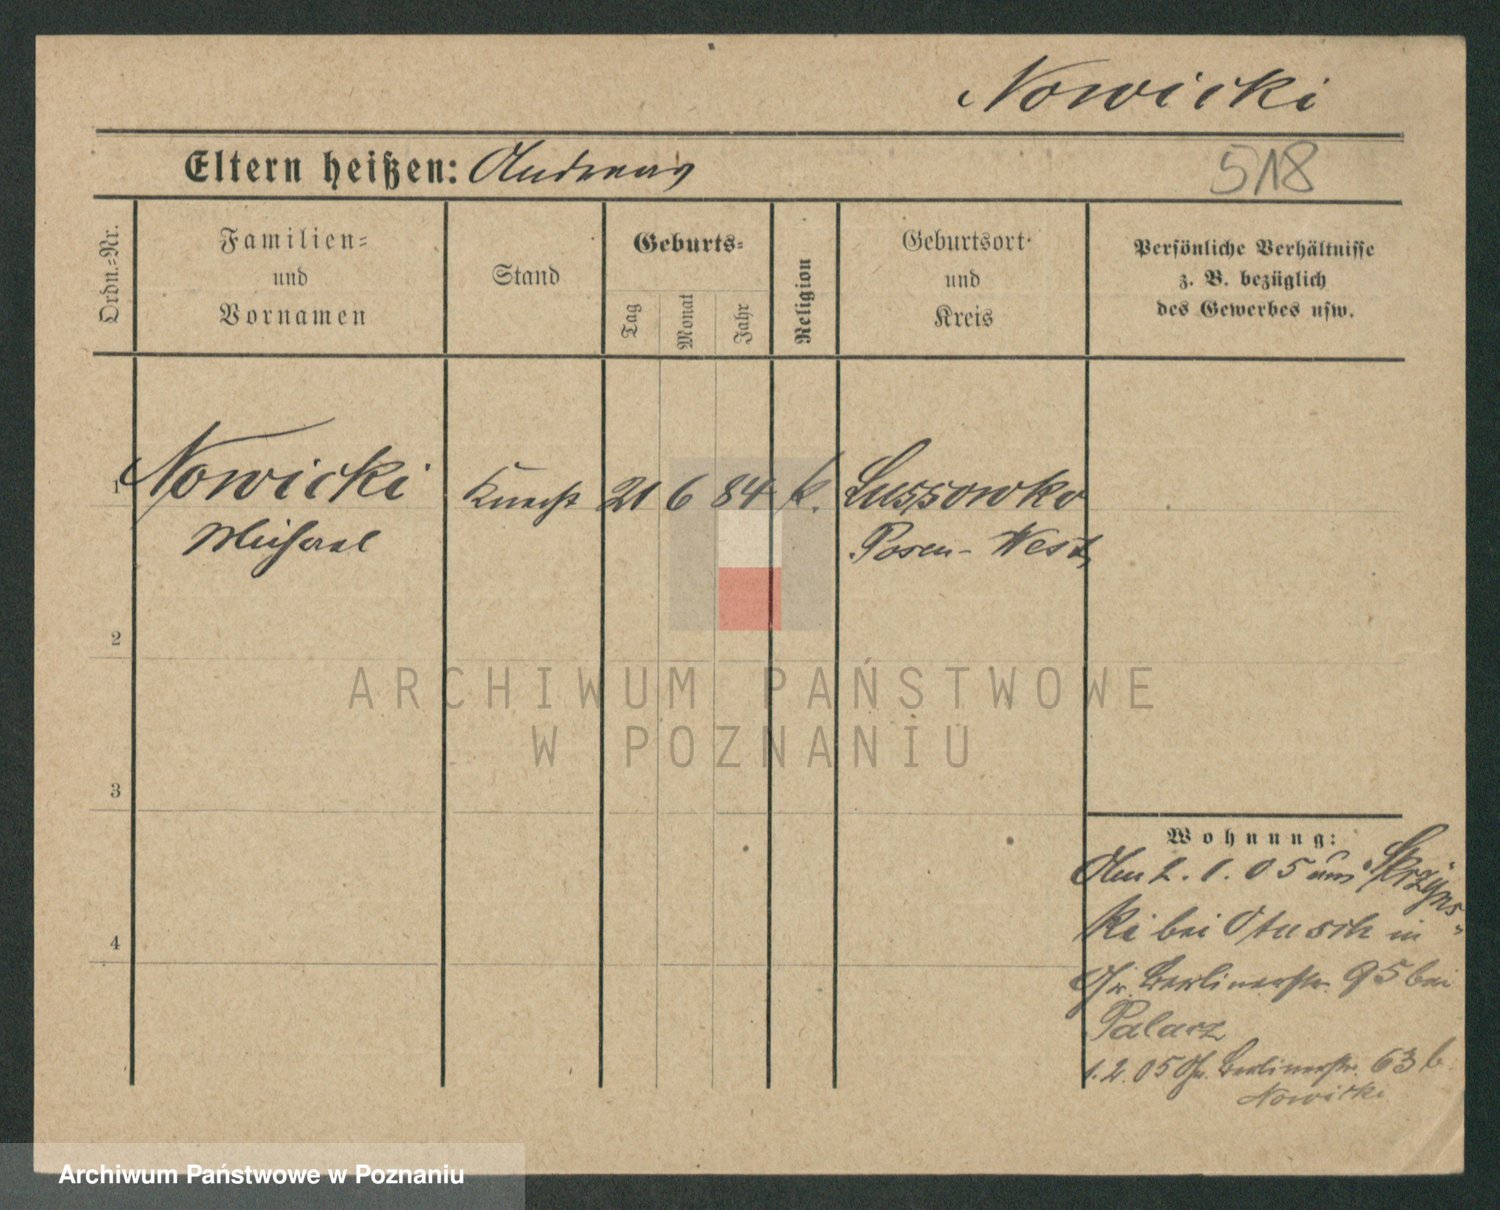 Nowicki
Eltern heißen: Andreas
518
Ordn.-Nr.
Familien-
und
Vornamen
Stand
Geburts-
Tag
Monat
Jahr
Religion
Geburtsort
und
Kreis
Persönliche Verhältnisse
z. B. bezüglich
des Gewerbes usw.
1 Nowicki Knecht 21 6 84 k. Lussowko
Michael Posen-West
2
3
4
Wohnung:
Am 2. 1. 05 aus Skrzyns-
ki bei Otusch in
Berlinerstr. 95 bei
Palacz
1. 2. 05 Berlinerstr. 63 b.
Nowicki
ARCHIWUM PAŃSTWOWE
W POZNANIU
Archiwum Państwowe w Poznaniu